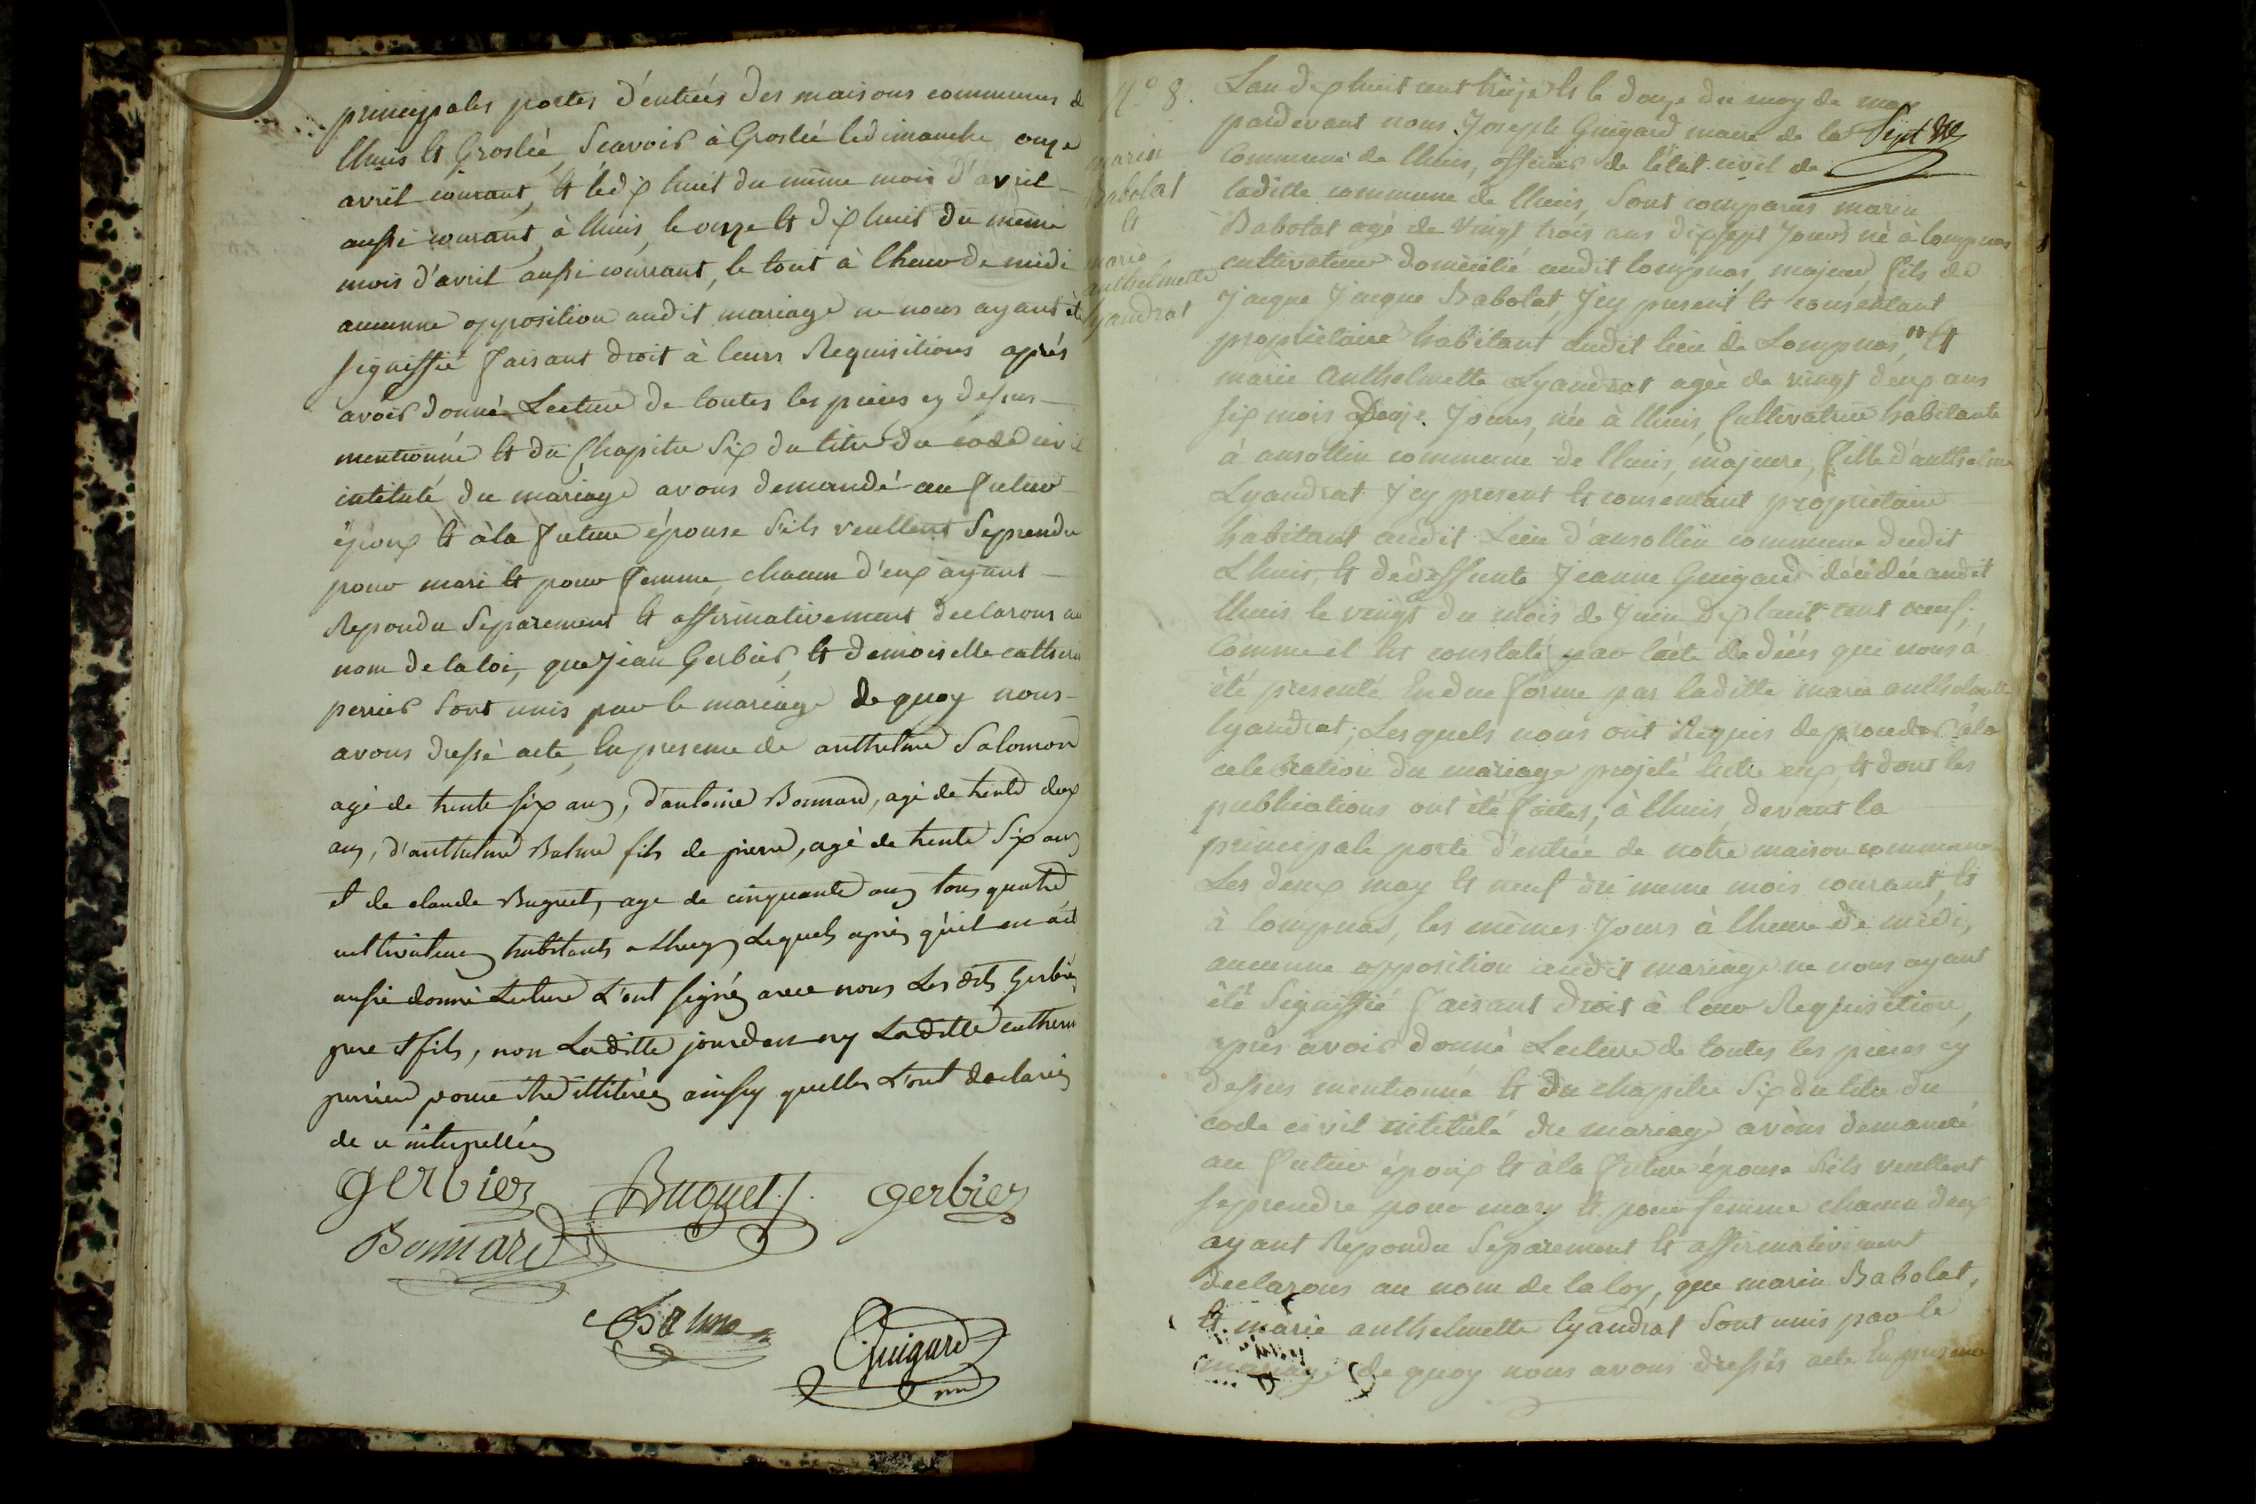 principales portes d'entrées des maisons communes de
lhuis et Groslée, Scavoir à Groslée le dimanche onze
avril courant, et le dix huit du même mois d'avril
aussi courant, à lhuis, le onze et dix huit du même
mois d'avril aussi courrant, le tout à lheure de midi
aucunne opposition audit mariage ne nous ayant été
signiffié faisant droit à leurs Requisitions après
avoir donné Lecture de toutes les pieces cy dessus
mentionné et du Chapitre Six du titre du code civil
intitulé du mariage avons demandé au futur
époux et à la future épouse S'ils veullent Se prendre
pour mari et pour femme, chacun d'eux ayant
Repondu Separement et affirmativement declarons au
nom de la loi, que Jean Gerbier, et demoiselle catherin
perrier Sont unis par le mariage de quoy nous
avons dressé acte, En presence de anthelme Salomon
agé de trente six ans, d'antoine Bonnard, agé de trente deux
ans, d'anthelme Balme fils de pierre, agé de trente Six ans
et de claude Buguet, age de cinquante ans tous quatre
cultivateurs habitants a Lhuys Lesquels après qu'il en a été
aussi donné Lecture L'ont signés avec nous Les dits Gerbier
pere et fils, non Laditte jourdan ny Laditte catherin
perrier pour être illitérées ainsy quelles L'ont declarées
de ce interpellées
Gerbier Buguet Gerbier
Bonnard
Balme
Guigard
N.° 8.
marin
Babolat
et
marie
anthelmette
Lyandrat
Sept
Lan dix huit cent treize et le douze du moy de may
pardevant nous Joseph Guigard maire de la
Commune de lhuis, officier de l'état civil de
laditte commune de lhuis, Sont comparus marin
Babolat agé de vingt trois ans dix sept Jours né à Lompnas
cultivateur domicilié audit Lompnas, majeur fils de
Jacque Jacque Babolat, Jcy present et consentant
propriétaire habitant audit lieu de Lompnas, et
marie anthelmette Lyandrat agée de vingt deux ans
six mois Douze Jours, née à lhuis, Cultivatrice habitante
à ansollin commune de lhuis, majeure, fille d'anthelme
Lyandrat Jcy present et consentant propriétaire
habitant audit Lieu d'ansollin commune dudit
Lhuis, et de deffunte Jeanne Guigard décédée audit
lhuis le vingt du mois de Juin dix huit cent neuf,
Comme il est constaté par lacte de décés qui nous à
été presenté En due forme par laditte marie anthelmette
Lyandrat, Lesquels nous ont Requis de proceder à la
celebration du mariage projeté Entre eux, et dont les
publications ont été faites, à lhuis devant la
principale porte d'entrée de notre maison commune
Les deux may et neuf du meme mois courant, et
à Lompnas, les mêmes Jours à lheure de midi,
aucunne opposition audit mariage ne nous ayant
été Signiffié faisant droit à leur Requisition,
après avoir donné Lecture de toutes les pieces cy
dessus mentionné et du chapitre Six du titre du
code civil intitulé du mariage avons demandé
au futur époux et à la future épouse S'ils veullent
se prendre pour mary et pour femme chacun deux
ayant Repondu Separement et affirmativement
declarons au nom de la loy, que marin Babolat,
et marie anthelmette Lyandrat Sont unis par le
mariage de quoy nous avons dressés acte En presence